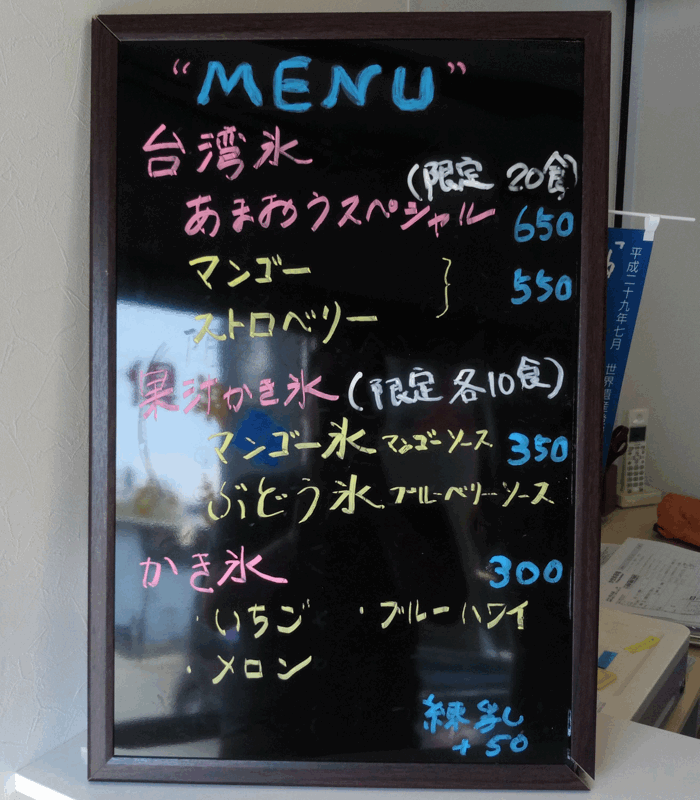 "MENU"
台湾氷
(限定 20食)
あまおうスペシャル 650
マンゴー
550
ストロベリー
果汁かき氷 (限定 各10食)
マンゴー氷 マンゴーソース 350
ぶどう氷 ブルーベリーソース
かき氷 300
・いちご ・ブルーハワイ
・メロン
練乳
+50
平成二十九年七月 世界遺産